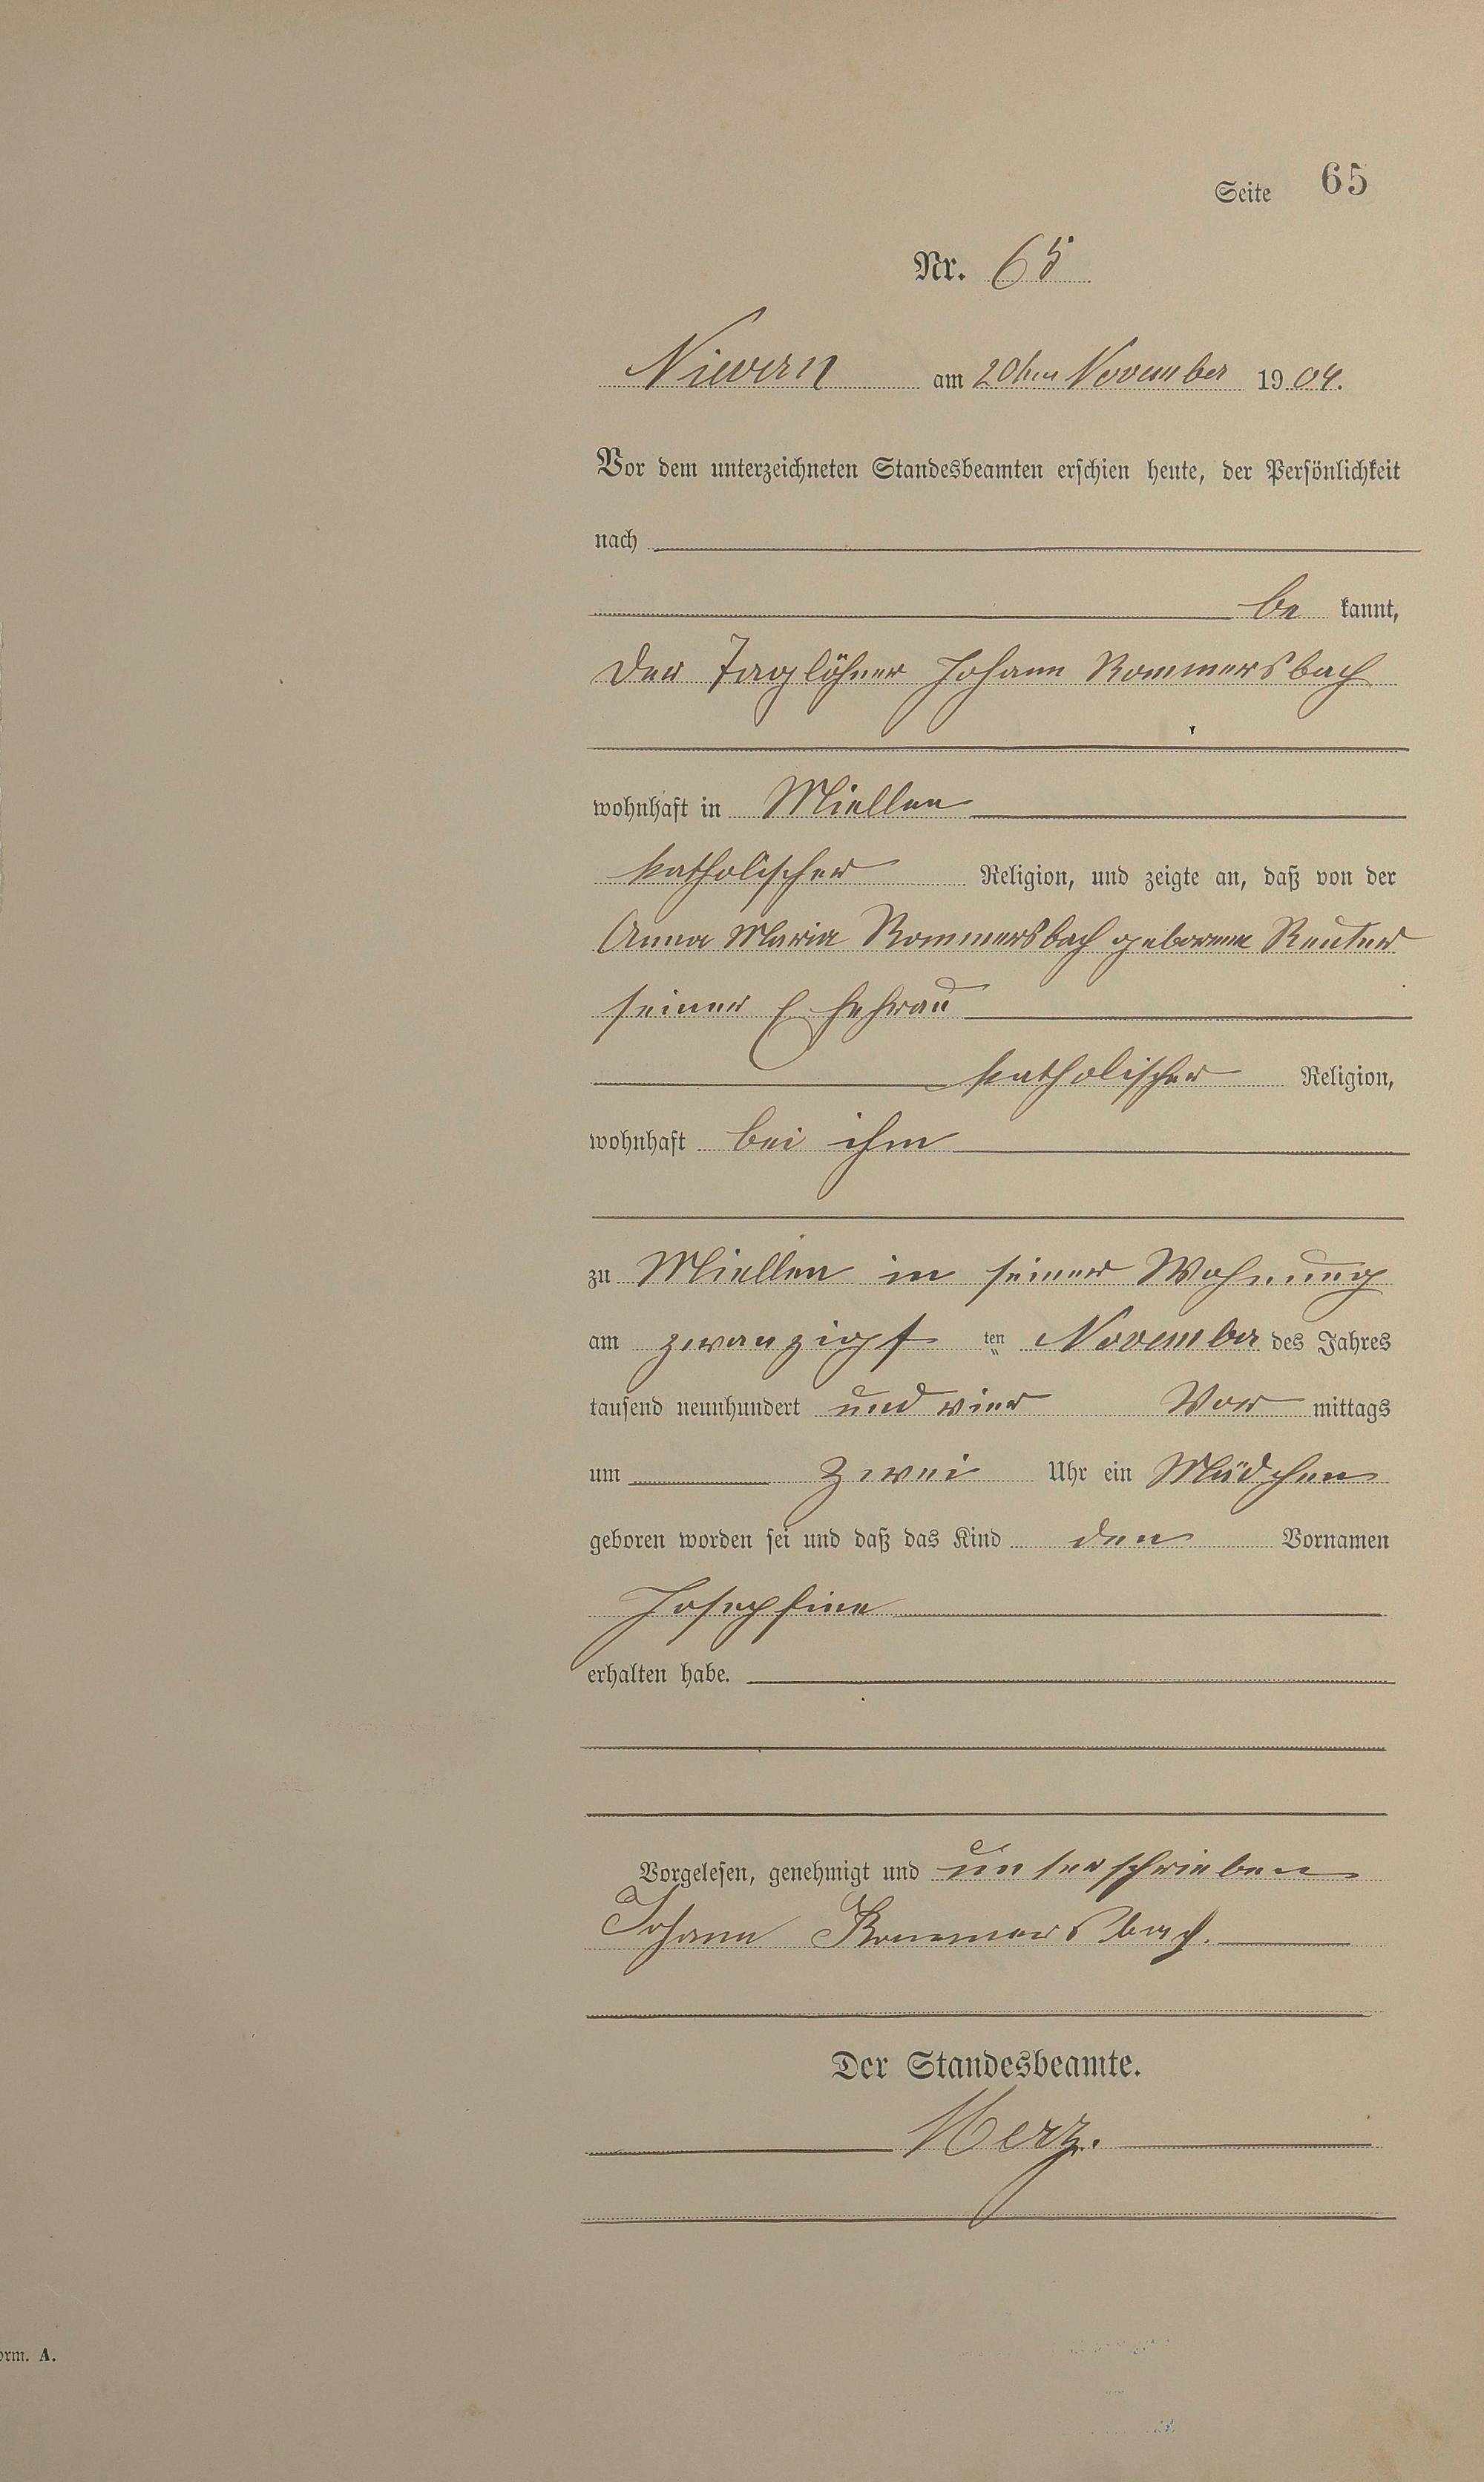 Seite 65
Nr. 65
Nievern am 20ten November 1904.
Vor dem unterzeichneten Standesbeamten erschien heute, der Persönlichkeit
nach
be kannt,
der Taglöhner Johann Rommersbach
wohnhaft in Miellen
katholischer Religion, und zeigte an, daß von der
Anna Maria Rommersbach geborene Reuter
seiner Ehefrau
katholischer Religion,
wohnhaft bei ihm
zu Miellen in seiner Wohnung
am zwanzigst ten November des Jahres
tausend neunhundert und vier Vor mittags
um zwei Uhr ein Mädchen
geboren worden sei und daß das Kind den Vornamen
Josephine
erhalten habe.
Vorgelesen, genehmigt und unterschrieben
Johann Rommersbach.
Der Standesbeamte.
Merz.
orm. A.